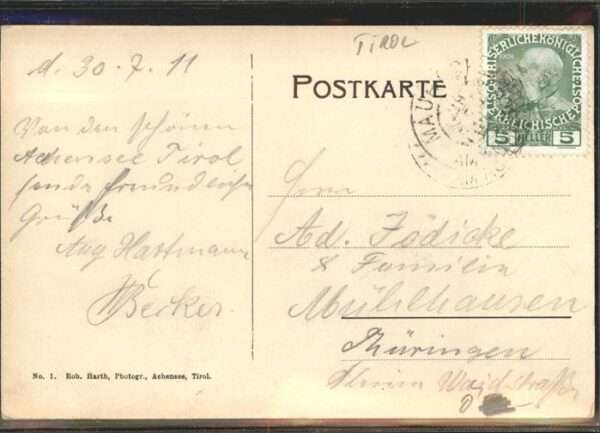 TIROL
d. 30.7.11
Von den schönen
Achensee Tirol
sende freundliche
Grüße
Aug Hartmann
Becker
No. 1. Rob. Harth, Photogr., Achensee, Tirol.
POSTKARTE
KAISERLICHE KÖNIGLICHE
ÖSTERREICHISCHE
5 HELLER 5
MAU
Herrn
Ad. Jödicke
& Familie
Mühlhausen
Thüringen
Waidstraße